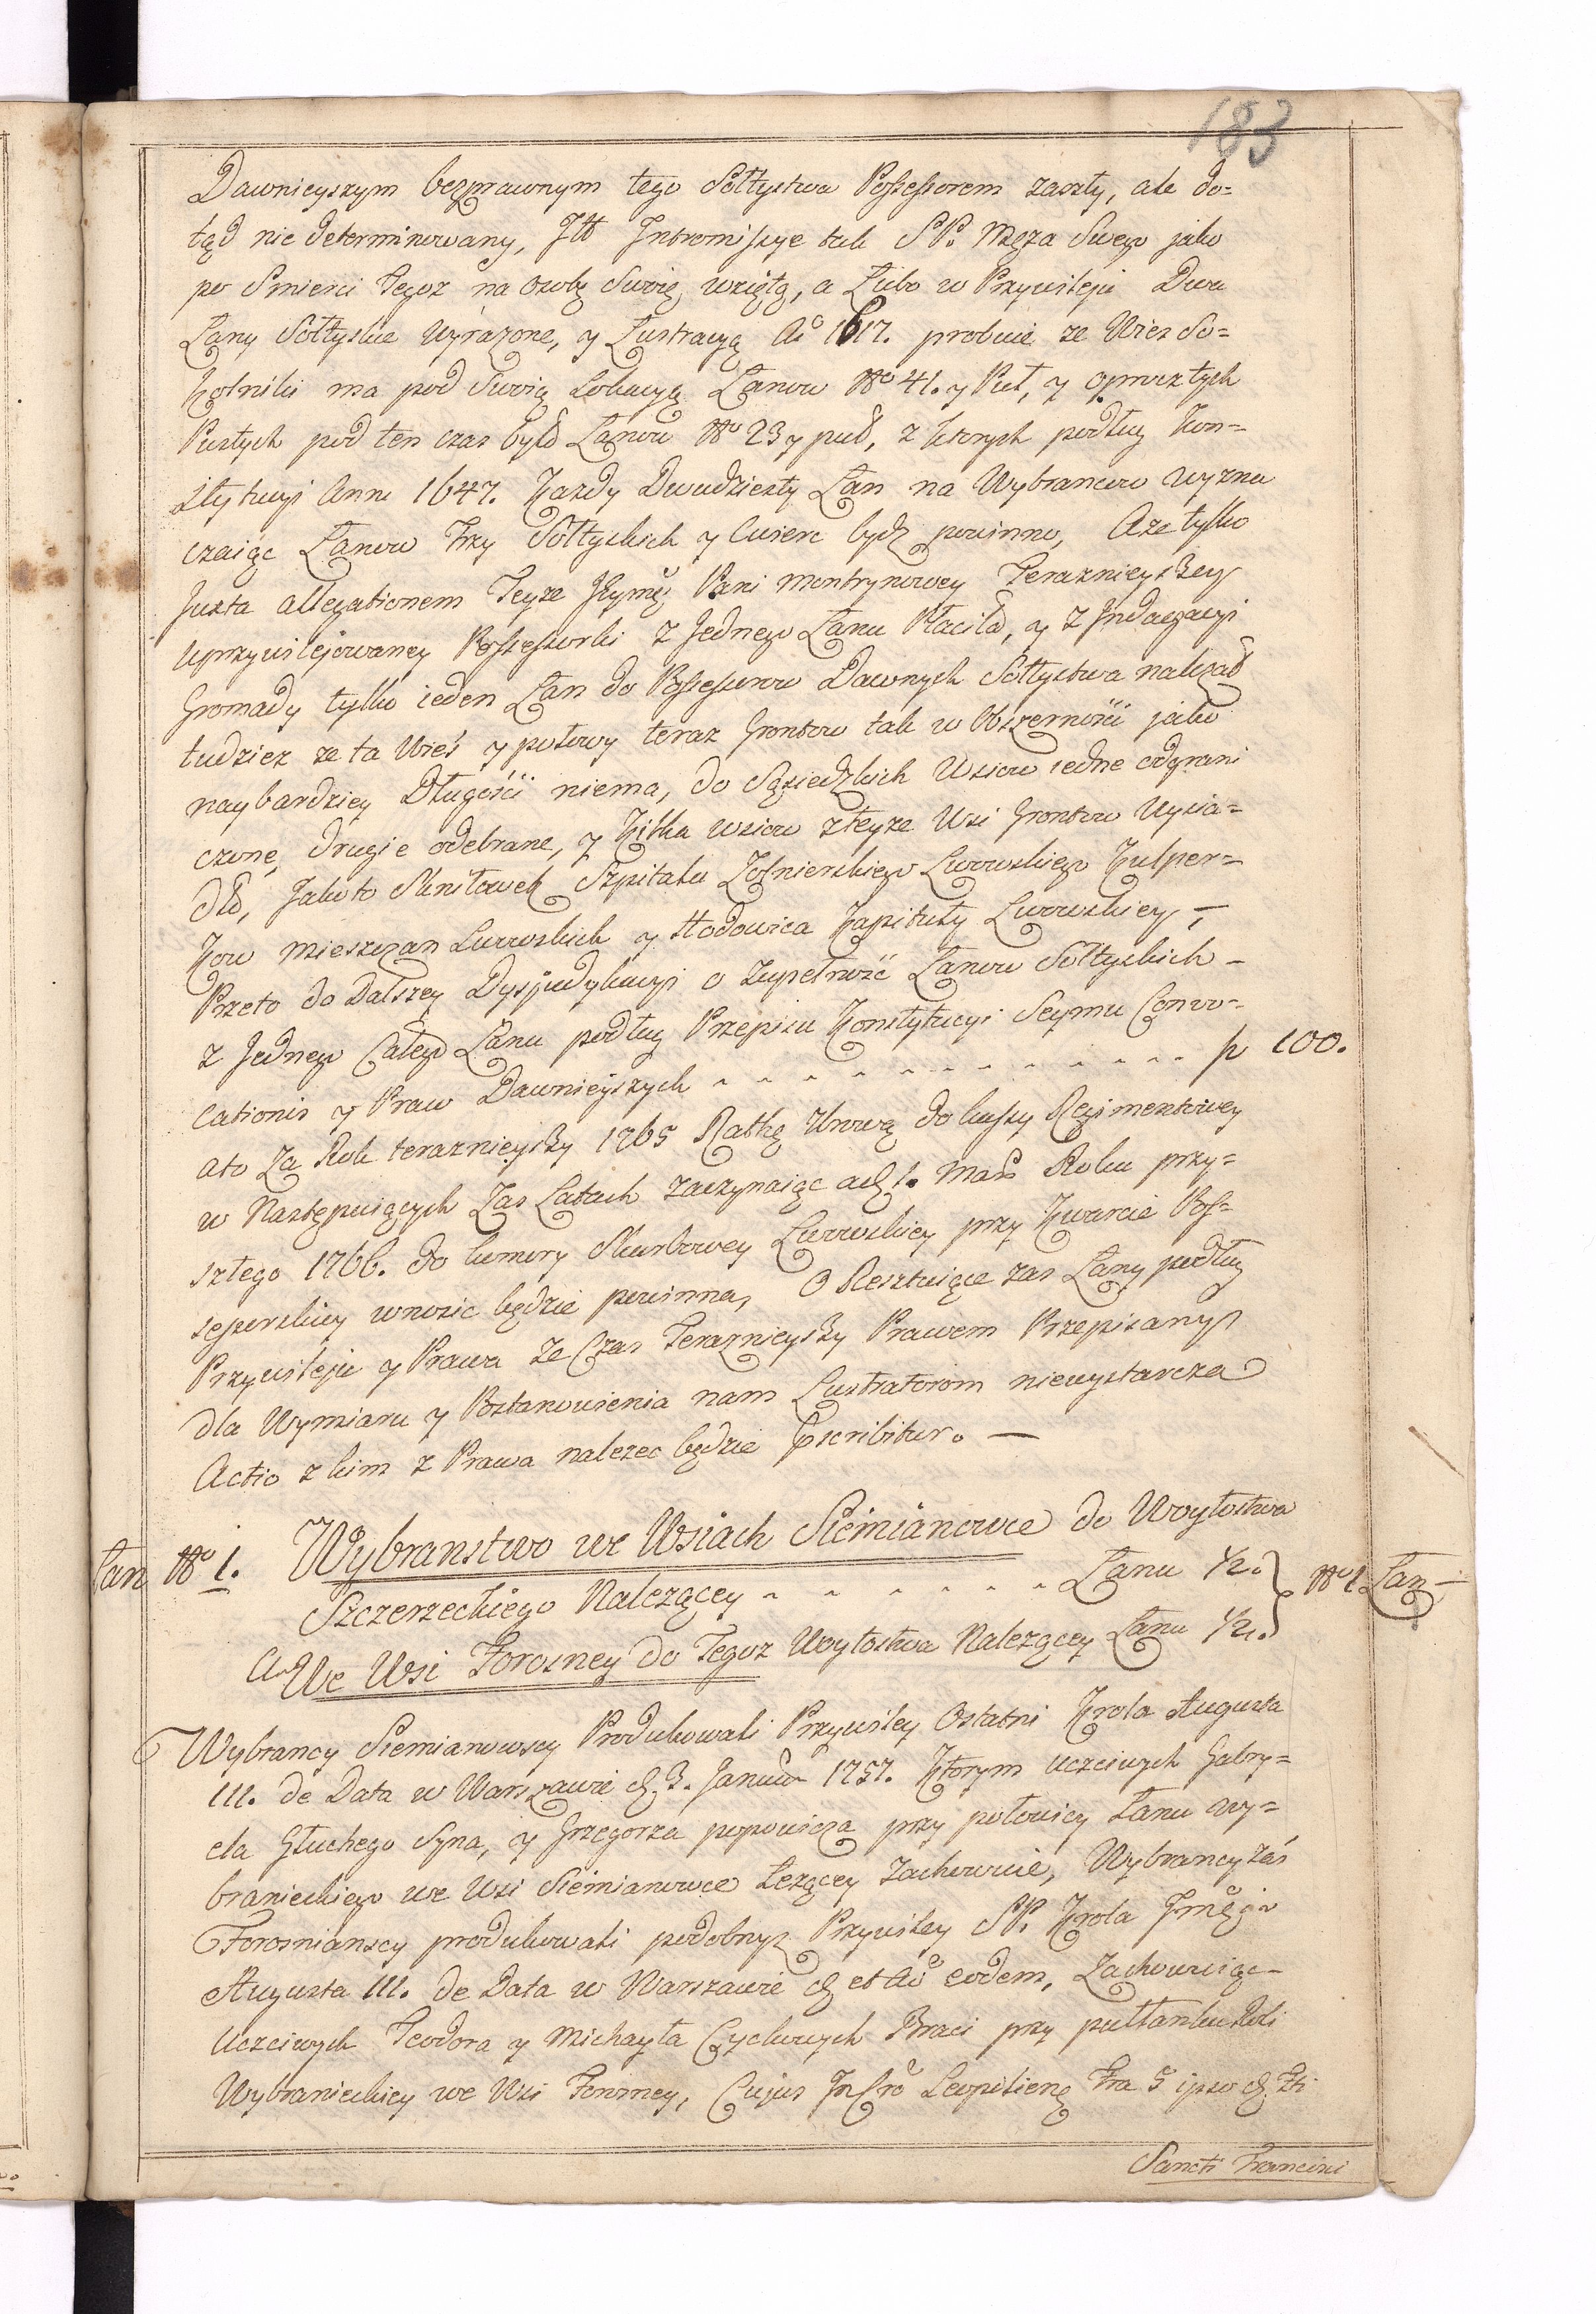 183
Dawnieyszym bezprawnym tego Sołtystwa Possessorem zaszły, ale do=
tąd nie determinowany, Jtt Intromissye tak SP. Męża Swego jako
po Smierci Tegoz na Osobę Swoię wziętą, a Lubo w Przywileju Dwa
Łany Sołtyskie wyrazone, y Lustracyą Ao 1617. probuie ze Wies So=
kolniki ma pod Swoią Lokacyą Łanow No 41. y Puł, y opruztych
Pustych pod ten czas było Łanow No 23 y puł, z ktorych podług Kon=
stytucyi Anni 1647. Kazdy Dwudziesty Łan na Wybrancow wyzna
czaiąc Łanow Trzy Sołtyskich y Cwierc bydz powinno, Aze tylko
Juxta allegationem Teyze Jeymci Pani Montrynowey Teraznieyszey
uprzywilejowaney Possessorki z Jednego Łanu Płaciła, y z Indagacyi
Gromady tylko ieden Łan do Possessorow Dawnych Sołtystwa nalezał
tudziez ze ta Wieś y połowy teraz Grontow tak w Obszerności jako
naybardziey Długości niema, do Sąsiedzkich Wsiow iedne odgrani
czone, drugie odebrane, y Kilka wsiow zteyze Wsi Grontow Uysia=
dło, Jako to Skniłowek Szpitalu Zołnierskiego Lwowskiego Kulper=
kow Mieszczan Lwowskich y Hodowica Kapituły Lwowskiey, —
Przeto do Dalszey Dysjudykacyi o Zupełność Łanow Sołtyskich —
z Jednego Całego Łanu podług Przepisu Konstytucyi Seymu Convo=
cationis y Praw Dawnieyszych - - - - - - - - - - - p 100.
ato Za Rok teraznieyszy 1765 Ratkę Nową do kassy Regimentowey
w Następuiących Zas Latach zaczynaiąc ad 1. Maii Roku przy=
szłego 1766. do kamory Skarbowey Lwowskiey przy Kwarcie Pos=
sessorskiey wnosic będzie powinna, O Resztuiące zas Łany podług
Przywileju y Prawa ze Czas Teraznieyszy Prawem Przepisany
dla Wymiaru y Postanowienia nam Lustratorom niewystarcza
Actio z kim z Prawa nalezec będzie Pscribitur. —
Łan No 1. Wybranstwo we Wsiach Siemianowce do Woytostwa
Szczerzeckiego Nalezącey - - - - - - - Łanu 1/2. } No 1 Łan —
A We Wsi Forosney do Tegoz Woytostwa Nalezącey Łanu 1/2.
Wybrancy Siemianowscy Produkowali Przywiley Ostatni Krola Augusta
III. de Data w Warszawie d. 3. Januar 1757. Ktorym Uczciwych Gabry=
ela Głuchego Syna, y Grzegorza popowicza przy połowicy Łanu wy=
branieckiego we Wsi Siemianowce Lezącey Zachowuie, Wybrancy zaś
Forosnianscy produkowali podobny Przywiley SP. Krola Jmci
Augusta III. de Data w Warszawie d et Ao eodem, Zachowuiąc —
Uczciwych Teodora y Michayła Cyckowych Braci przy pułłanku Roli
Wybranieckiey we Wsi Forosney, Cujus In Cro Leopoliensi Fra 5 ipso d. Fti
Sancti Francisci